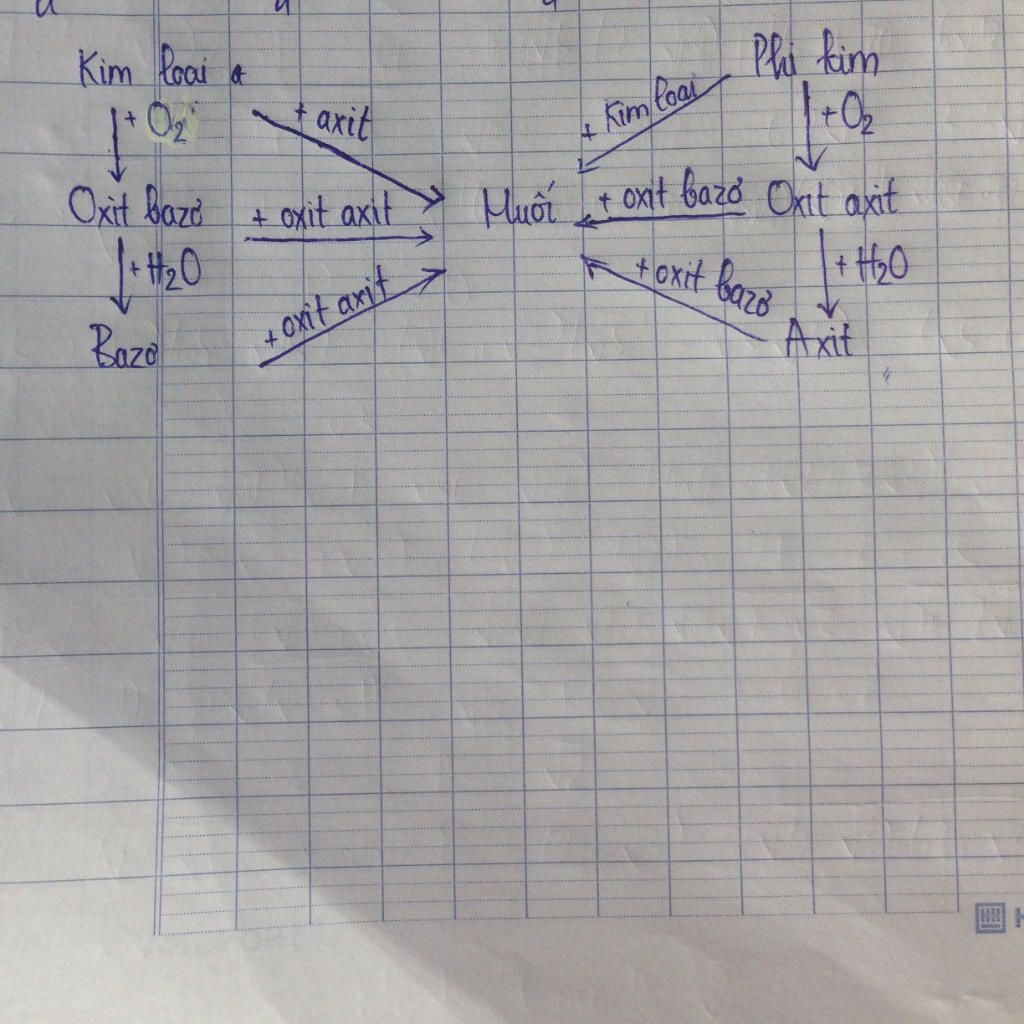 Kim loại Phi kim
+ O2 + axit + Kim loại + O2
Oxit bazơ + oxit axit Muối + oxit bazơ Oxit axit
+ H2O + oxit axit + oxit bazơ + H2O
Bazơ Axit